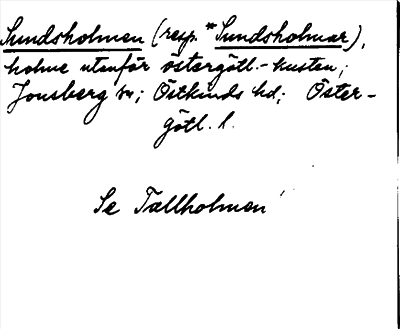 Sundsholmen (resp. *Sundsholmar),
holme utanför östergötl.-kusten;
Jonsberg sn; Östkinds hd; Öster-
götl. l.
Se Tallholmen